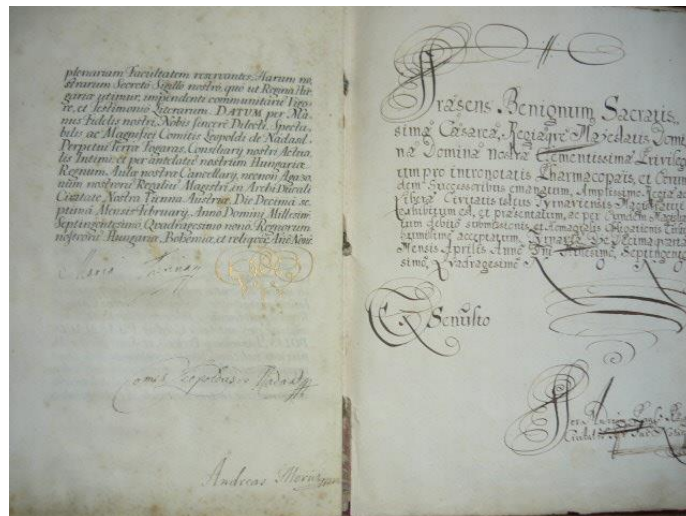 plenariam Facultatem reservantes. Harum no,
strarum Secreto Sigillo nostro, quo ut Regina Hun
gariæ utimur, impendenti communitarū Vigo,
re, et Testimonio Literarum. DATUM per Ma,
nus Fidelis nostri, Nobis sincerè Dilecti, Specta,
bilis ac Magnifici Comitis Leopoldi de Nadasd,
Perpetui Terræ Fogaras, Consiliarÿ nostri Actua,
lis Intimi, et per antelatum nostrum Hungariæ
Regnum Aulæ nostræ Cancellarÿ, necnon Agazo,
num nostrorū Regaliū Magistri, in Archi Ducali
Civitate Nostra Vienna Austriæ, Die Decima se,
ptima Mensis February, Anno Domini Millesimo
Septingentesimo Quadragesimo nono, Regnorum
nostrorū Hungariæ, Bohemiæ, et reliquorū Anô Nonô.
Maria Theresia
Comes Leopoldus de Nadasd
Andreas
Præsens Benignum Sacratis,
simæ Cæsareæ, Regiæque Majestatis Domi,
næ Dominæ nostræ Clementissimæ Privileg,
ium pro intronotatis Pharmacopæis, et Eorum
dem Successoribus emanatum, Amplissimo Regiæ ac
Liberæ Civitatis istius Tyrnaviensis Magistratui
exhibitum est, et præsentatum, ac per Eundem Magistra
tum debito submissionis, et Homagialis Obligationis
acceptatum, Tyrnaviæ Die Decima quarta
Mensis Aprilis Anno Dni Millesimo, Septingente
simo, Quadragesimo
Ex Senatu